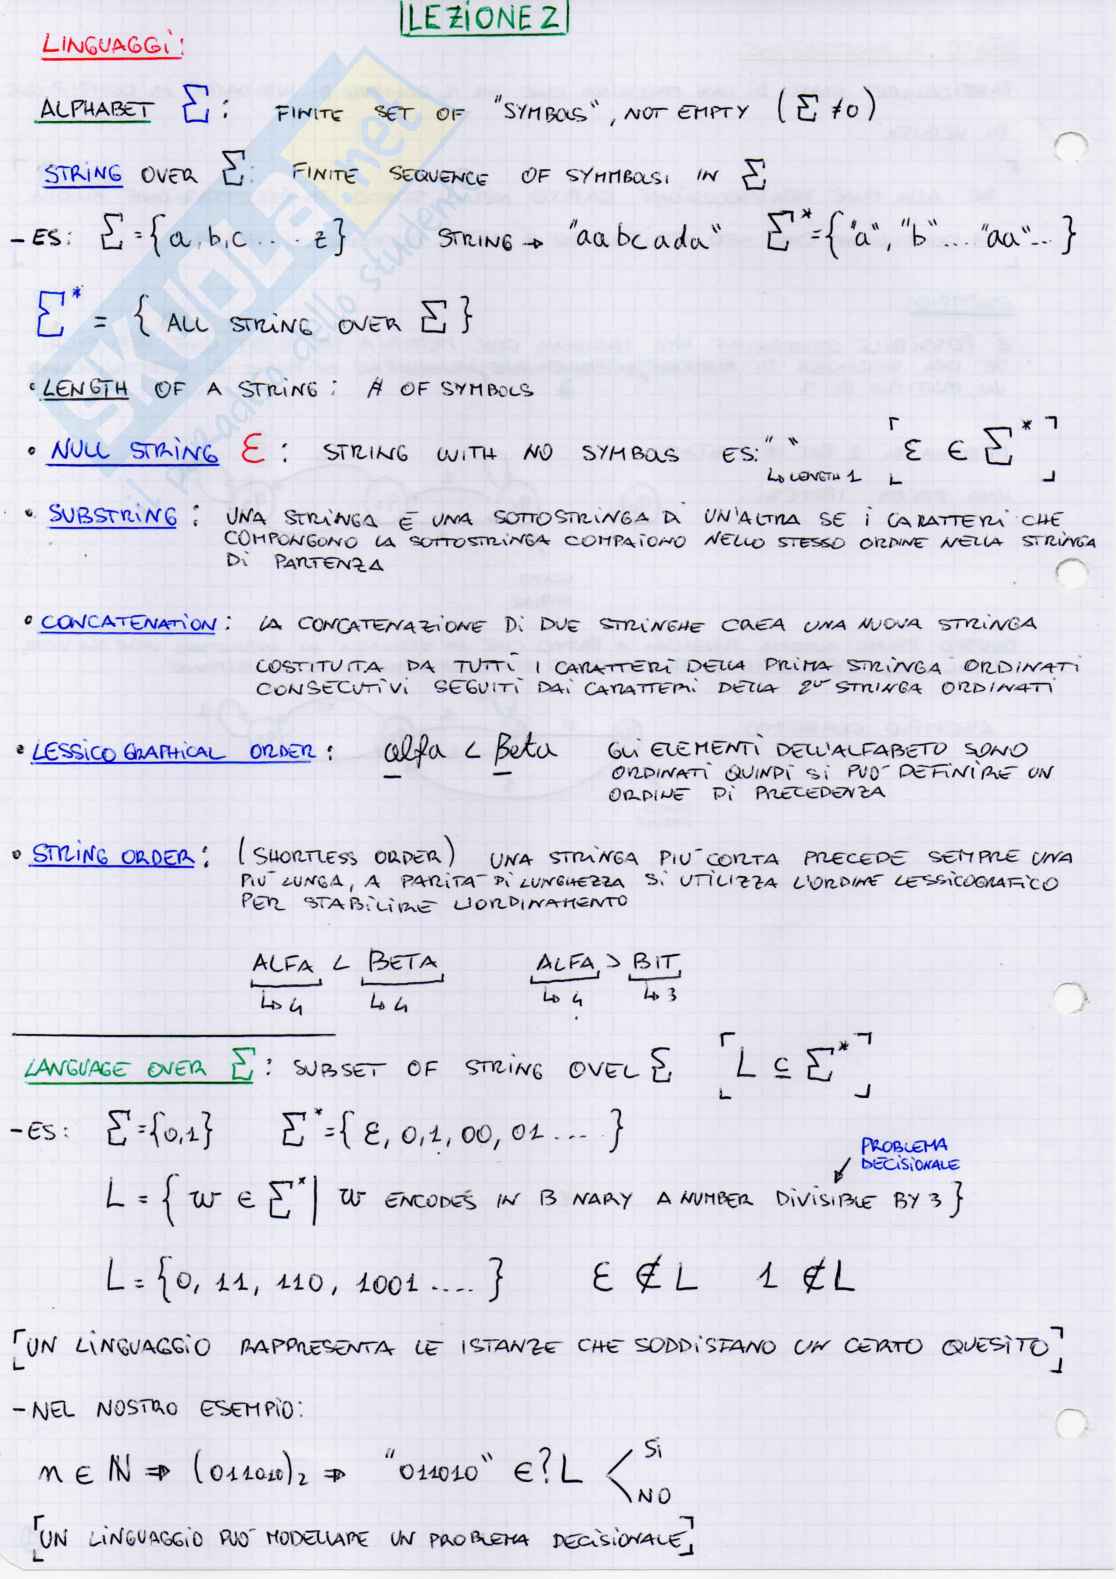 LEZIONE 2
LINGUAGGI:
ALPHABET Σ : FINITE SET OF "SYMBOLS", NOT EMPTY (Σ ≠0)
STRING OVER Σ: FINITE SEQUENCE OF SYMMBOLSI IN Σ
- ES: Σ={a,b,c....z} STRING → "aabcada" Σ*={"a", "b"... "aa"...}
Σ* = { ALL STRING OVER Σ }
• LENGTH OF A STRING: # OF SYMBOLS
• NULL STRING ε : STRING WITH NO SYMBOLS ES: " " ↳ LENGTH 1 [ ε ∈ Σ* ]
• SUBSTRING : UNA STRINGA È UNA SOTTOSTRINGA DI UN'ALTRA SE I CARATTERI CHE
COMPONGONO LA SOTTOSTRINGA COMPAIONO NELLO STESSO ORDINE NELLA STRINGA
DI PARTENZA
• CONCATENATION: LA CONCATENAZIONE DI DUE STRINGHE CREA UNA NUOVA STRINGA
COSTITUITA DA TUTTI I CARATTERI DELLA PRIMA STRINGA ORDINATI
CONSECUTIVI SEGUITI DAI CARATTERI DELLA 2ª STRINGA ORDINATI
• LESSICOGRAPHICAL ORDER: alfa < Beta GLI ELEMENTI DELL'ALFABETO SONO
ORDINATI QUINDI SI PUO' DEFINIRE UN
ORDINE DI PRECEDENZA
• STRING ORDER: (SHORTLESS ORDER) UNA STRINGA PIU' CORTA PRECEDE SEMPRE UNA
PIU' LUNGA, A PARITA' DI LUNGHEZZA SI UTILIZZA L'ORDINE LESSICOGRAFICO
PER STABILIRE L'ORDINAMENTO
ALFA < BETA ALFA > BIT
↳ 4 ↳ 4 ↳ 4 ↳ 3
LANGUAGE OVER Σ : SUBSET OF STRING OVEL Σ [ L ⊆ Σ* ]
- ES: Σ={0,1} Σ*={ε, 0,1,00, 01....}
PROBLEMA
DECISIONALE
L = { w ∈ Σ* | w ENCODES IN B NARY A NUMBER DIVISIBLE BY 3 }
L = {0, 11, 110, 1001 ....} ε ∉ L 1 ∉ L
[UN LINGUAGGIO RAPPRESENTA LE ISTANZE CHE SODDISFANO UN CERTO QUESITO]
- NEL NOSTRO ESEMPIO:
n ∈ ℕ ⇒ (011010)₂ ⇒ "011010" ∈? L < SI
NO
[UN LINGUAGGIO PUO' MODELLARE UN PROBLEMA DECISIONALE]
SKUOLA.net
il paradiso dello studente